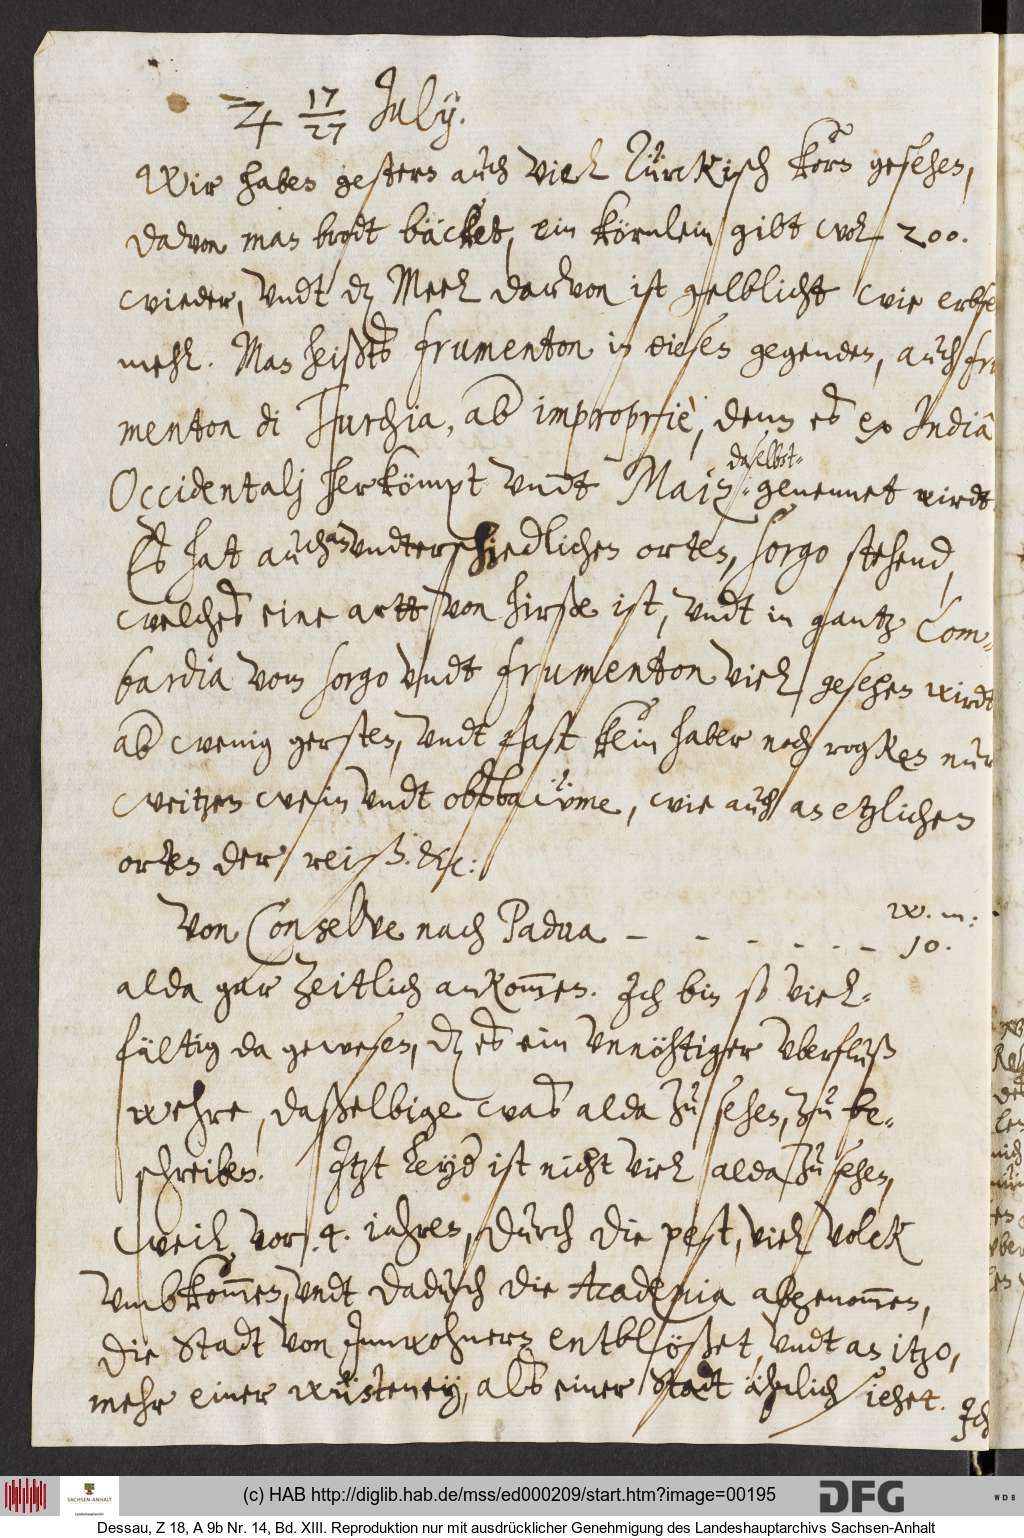 ♃ 17/27 July.
Wir haben gestern auch viel Türckisch korn gesehen,
davon man brodt bäcket, ein körnlein gibt wol 200.
wieder, vndt dz Meel darvon ist gelblicht wie erbse
mehl. Man heißts frumenton in diesen gegenden, auch fru
menton di Turchia, ab impropriè, denn es ex Indiâ
Occidentalj herkömpt vndt Maiz daselbst genennet wirdt.
Es hat auch an vndterschiedlichen orten, sorgo stehend,
welches eine artt von hirße ist, vndt in gantz Lom-
bardia vom sorgo vndt frumenton viel gesehen wirdt
ab wenig gersten, vndt fast kein haber noch rogken nur
weitzen wein vndt obstbäwme, wie auch an etzlichen
orten der reiß. &c:
Von Conselve nach Padua — — — — — — w. m: 10.
alda gar zeitlich ankom̄en. Ich bin so viel-
fältig da gewesen, dz es ein vnnöhtiger vberfluß
wehre, daßelbige was alda zu sehen, zu be-
schreiben. Itzt leyd ist nicht viel alda zu sehen,
weil vor .4. iahren, durch die pest, viel volck
vmbkom̄en, vndt dadurch die Academia abgenom̄en,
die Stadt von Innwohnern entblößet, vndt an itzo,
mehr einer wüsteney, als einer Stadt ähnlich siehet.
Ich
(c) HAB http://diglib.hab.de/mss/ed000209/start.htm?image=00195
SACHSEN-ANHALT
DFG
WDB
Dessau, Z 18, A 9b Nr. 14, Bd. XIII. Reproduktion nur mit ausdrücklicher Genehmigung des Landeshauptarchivs Sachsen-Anhalt